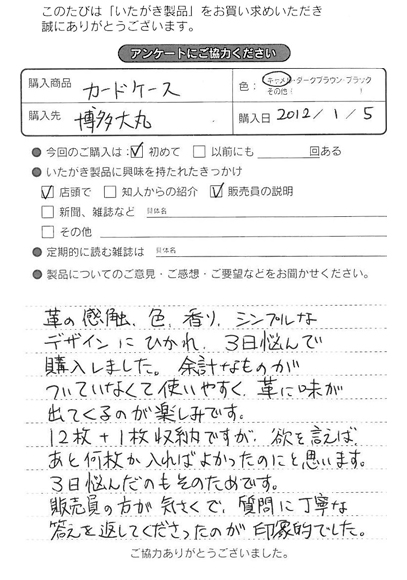 このたびは「いたがき製品」をお買い求めいただき
誠にありがとうございます。
アンケートにご協力ください
購入商品 カードケース 色： キャメル・ダークブラウン・ブラック
その他（ ）
購入先 博多大丸 購入日 2012/1/5
● 今回のご購入は： ☑ 初めて □ 以前にも 回ある
● いたがき製品に興味を持たれたきっかけ
☑ 店頭で □ 知人からの紹介 ☑ 販売員の説明
□ 新聞、雑誌など 具体名
□ その他
● 定期的に読む雑誌は 具体名
● 製品についてのご意見・ご感想・ご要望などをお聞かせください。
革の感触、色、香り、シンプルな
デザインにひかれ、3日悩んで
購入しました。余計なものが
ついていなくて使いやすく、革に味が
出てくるのが楽しみです。
12枚+1枚収納ですが、欲を言えば、
あと何枚か入ればよかったのにと思います。
3日悩んだのもそのためです。
販売員の方が気さくで、質問に丁寧な
答えを返してくださったのが印象的でした。
ご協力ありがとうございました。